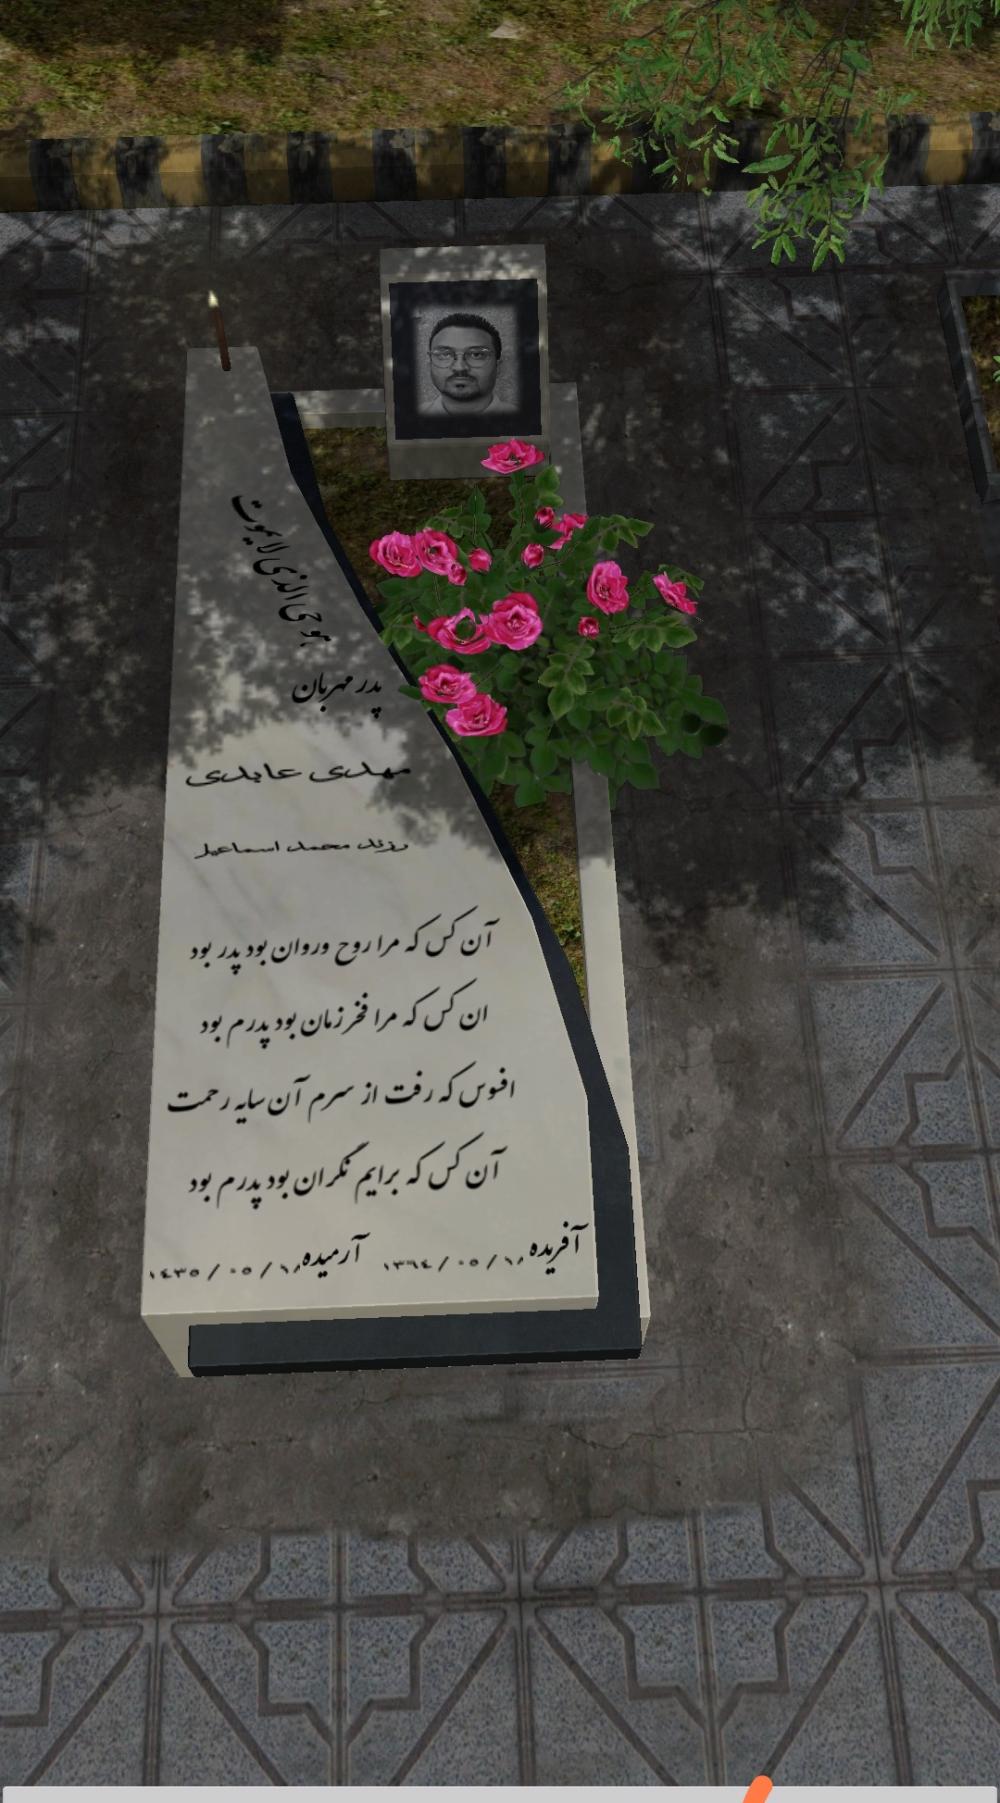 هو حی الذی لا یموت
پدر مهربان
مهدی عابدی
رزند محمد اسماعیل
آن کس که مرا روح وروان بود پدر بود
ان کس که مرا فخر زمان بود پدرم بود
افسوس که رفت از سرم آن سایه رحمت
آن کس که برایم نگران بود پدرم بود
آفریده ١٣٦٤/٠٥/١٨ آرمیده ١٤٣٥/٠٥/١٨